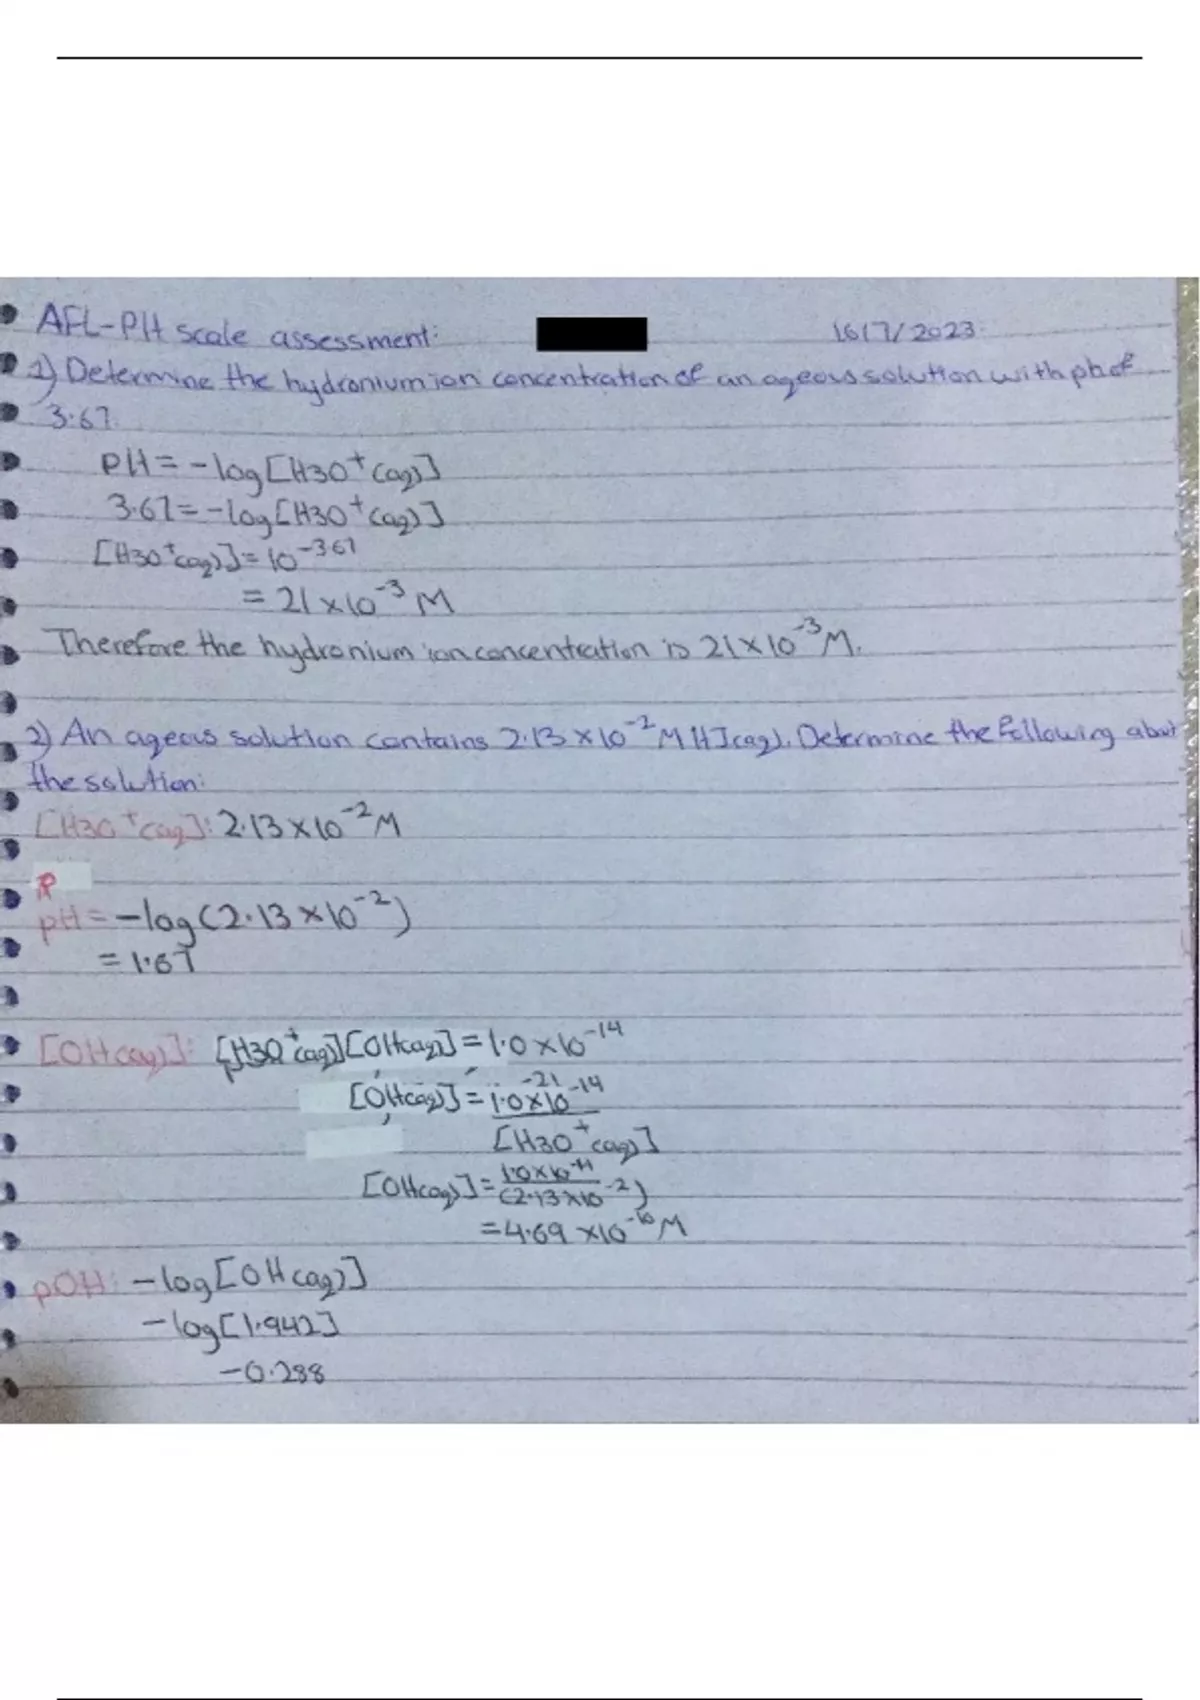 AFL-PH scale assessment: 16/7/2023
1) Determine the hydronium ion concentration of an ageous solution with ph of
3.67.
PH = -log[H3O+(aq)]
3.67 = -log[H3O+(aq)]
[H3O+(aq)] = 10^-3.67
= 21 x 10^-3 M
Therefore the hydronium ion concentration is 21 x 10^-3 M.
2) An ageous solution contains 2.13 x 10^-2 M HI(aq). Determine the following about
the solution:
[H3O+(aq)]: 2.13 x 10^-2 M
pH = -log(2.13 x 10^-2)
= 1.67
[OH(aq)]: [H3O+(aq)][OH(aq)] = 1.0 x 10^-14
[OH(aq)] = 1.0 x 10^-14
[H3O+(aq)]
[OH(aq)] = 1.0 x 10^-14
(2.13 x 10^-2)
= 4.69 x 10^-10 M
pOH: -log[OH(aq)]
-log[1.942]
-0.288